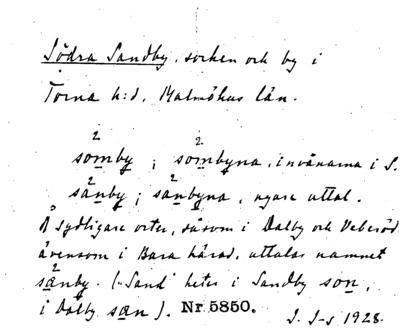 Södra Sandby, socken och by i
Torna h:d, Malmöhus län.
2 2
somby; sombyna, invånarna i S.
2 2
sänby; sänbyna, nyare uttal.
Å sydligare orter, såsom i Dalby och Veberöd
ävensom i Bara härad, uttalas namnet
2
sænby. ("Sand" heter i Sandby son,
i Dalby sæn). Nr 5850.
1928.